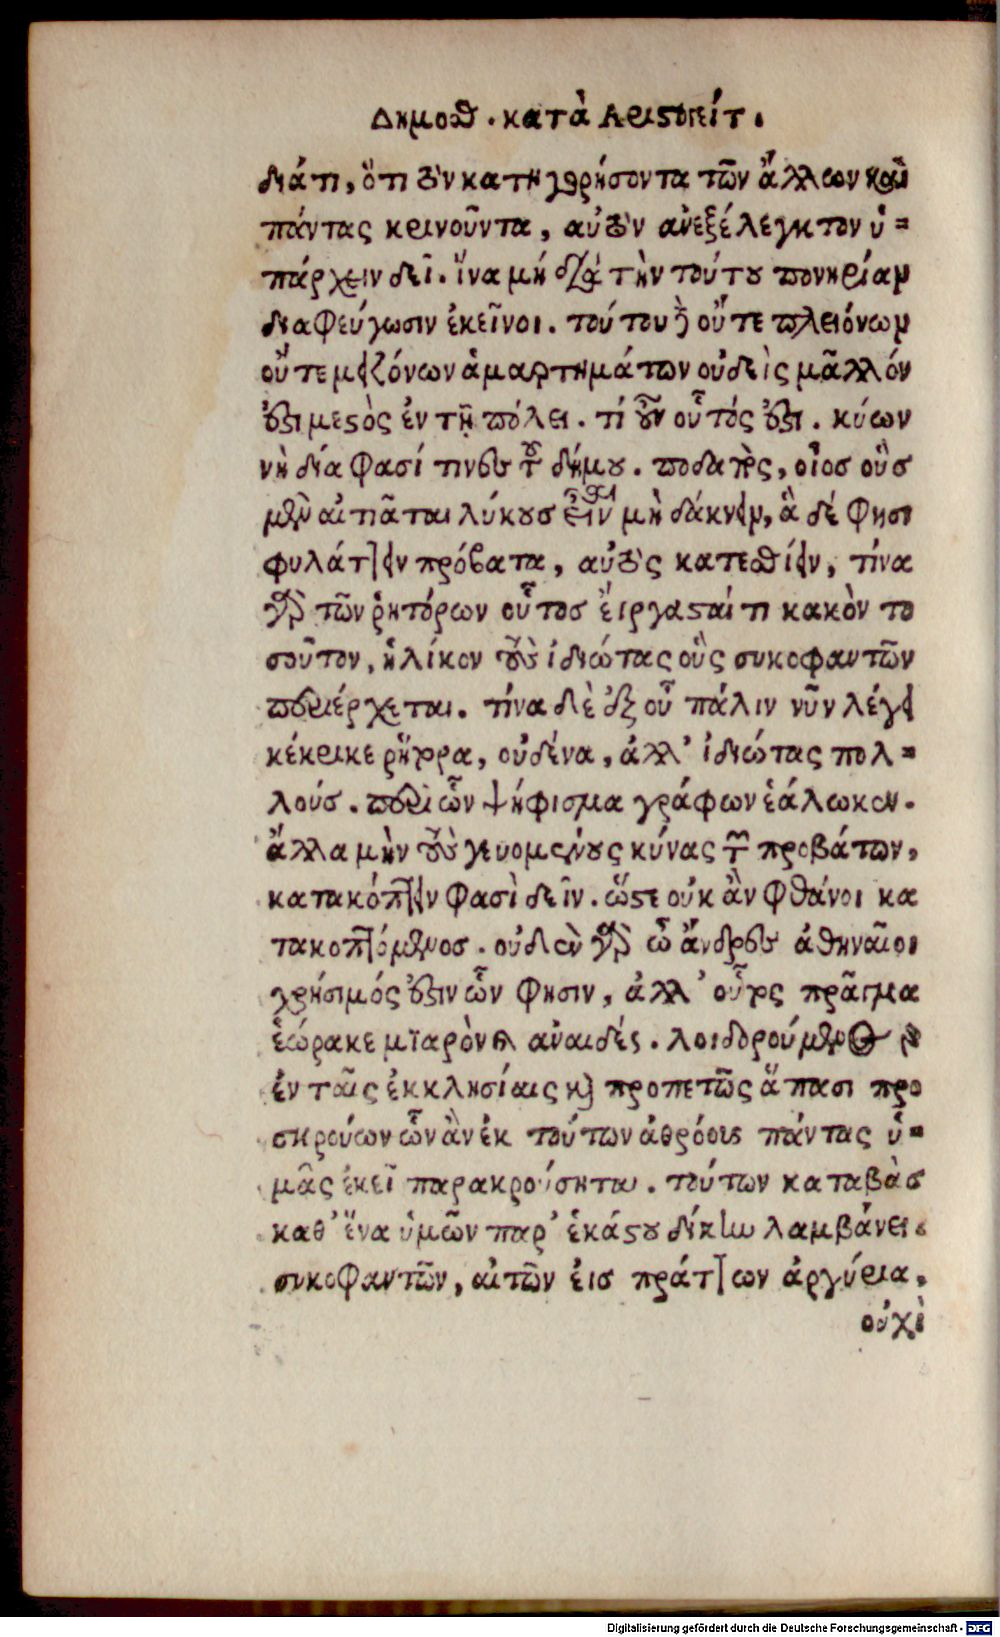 Δημοσθ. κατὰ Αριστογείτ.
διάτι, ὅτι τὸν κατηγορήσοντα τῶν ἄλλων καὶ
πάντας κρινοῦντα, αὐτὸν ἀνεξέλεγκτον ὑ=
πάρχειν δεῖ. ἵνα μή διὰ τὴν τούτου πονηρίαν
διαφεύγωσιν ἐκεῖνοι. τούτου δὲ οὔτε πλειόνων
οὔτε μειζόνων ἁμαρτημάτων οὐδεὶς μᾶλλόν
ἐστι μεστὸς ἐν τῇ πόλει. τί οὖν οὗτός ἐστι. κύων
νὴ δία φασί τινες τοῦ δήμου. ποδαπὸς, οἷοσ οὓσ
μὲν αἰτιᾶται λύκουσ εἶναι μὴ δάκνειν, ἃ δέ φησι
φυλάττειν πρόβατα, αὐτὸς κατεσθίειν, τίνα
γὰρ τῶν ῥητόρων οὗτοσ εἴργασταί τι κακὸν το
σοῦτον, ἡλίκον τοὺς ἰδιώτας οὓς συκοφαντῶν
περιέρχεται. τίνα δὲ ἐξ οὗ πάλιν νῦν λέγει
κέκρικε ῥήτορα, οὐδένα, ἀλλ' ἰδιώτας πολ=
λούς. περὶ ὧν ψήφισμα γράφων ἑάλωκεν.
ἄλλα μὴν τοὺς γευομένους κύνας τῶν προβάτων,
κατακόπτειν φασὶ δεῖν. ὥστε οὐκ ἂν φθάνοι κα
τακοπτόμενοσ. οὐδὲν γὰρ ὦ ἄνδρες ἀθηναῖοι
χρήσιμός ἐστιν ὧν φησιν, ἀλλ' οὗτος πρᾶγμα
ἑώρακε μϊαρὸν καὶ ἀναιδές. λοιδορούμενος γὰρ
ἐν ταῖς ἐκκλησίαις καὶ προπετῶς ἅπασι προ
σκρούων ὧν ἂν ἐκ τούτων ἀθρόους πάντας ὑ=
μᾶς ἐκεῖ παρακρούσηται. τούτων καταβὰσ
καθ' ἕνα ὑμῶν παρ' ἑκάστου δίκην λαμβάνει.
συκοφαντῶν, αἰτῶν εἰσ πράττων ἀργύρια,
οὐχὶ
Digitalisierung gefördert durch die Deutsche Forschungsgemeinschaft - DFG